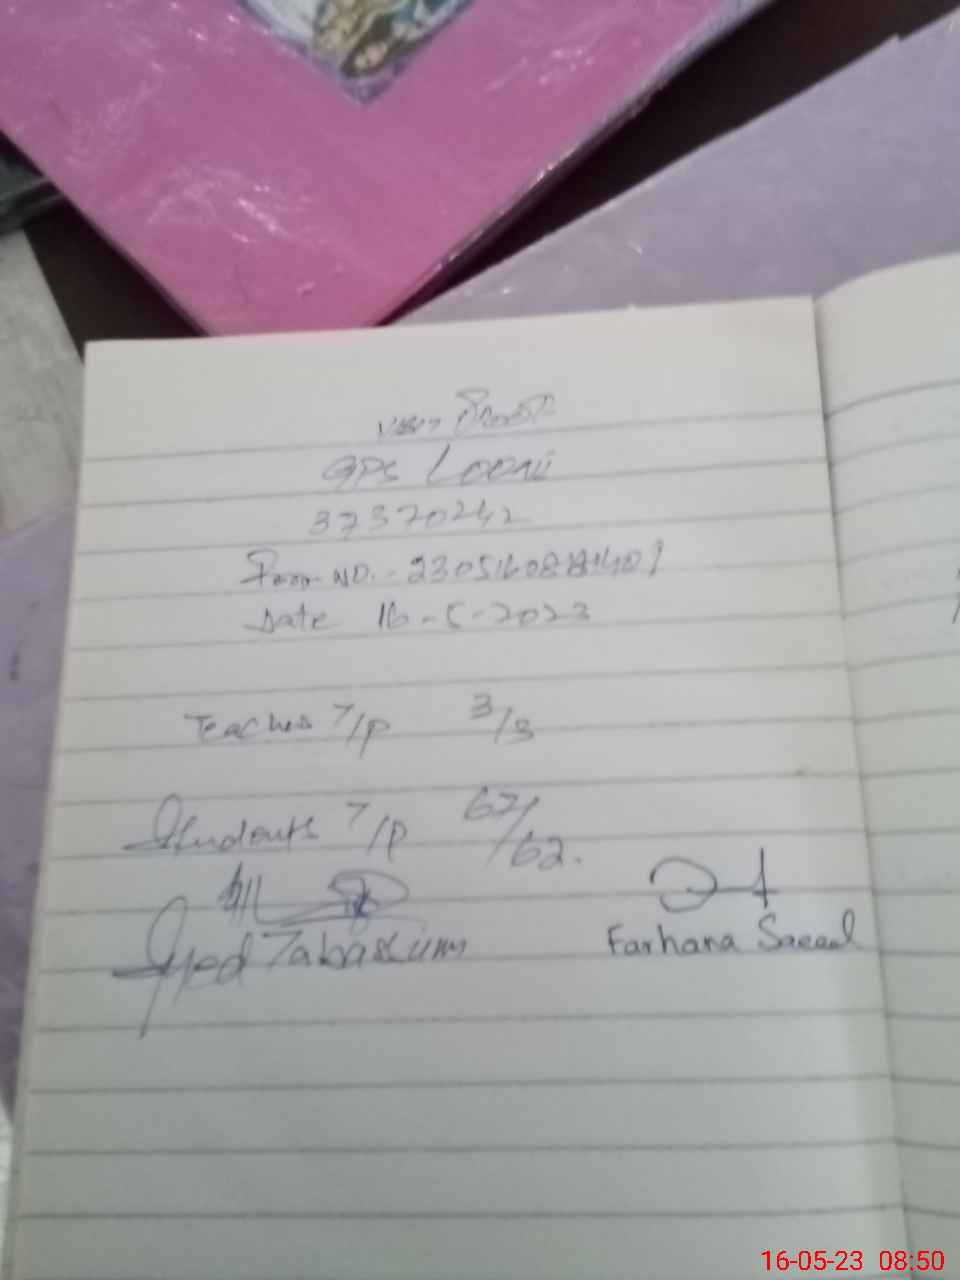 GPS Looni
37370242
Form NO. - 
Date 16-5-2023
Teaches T/P 3/3
Students T/P 62/62.
Syed Tabassum
Farhana Saeed
16-05-23 08:50